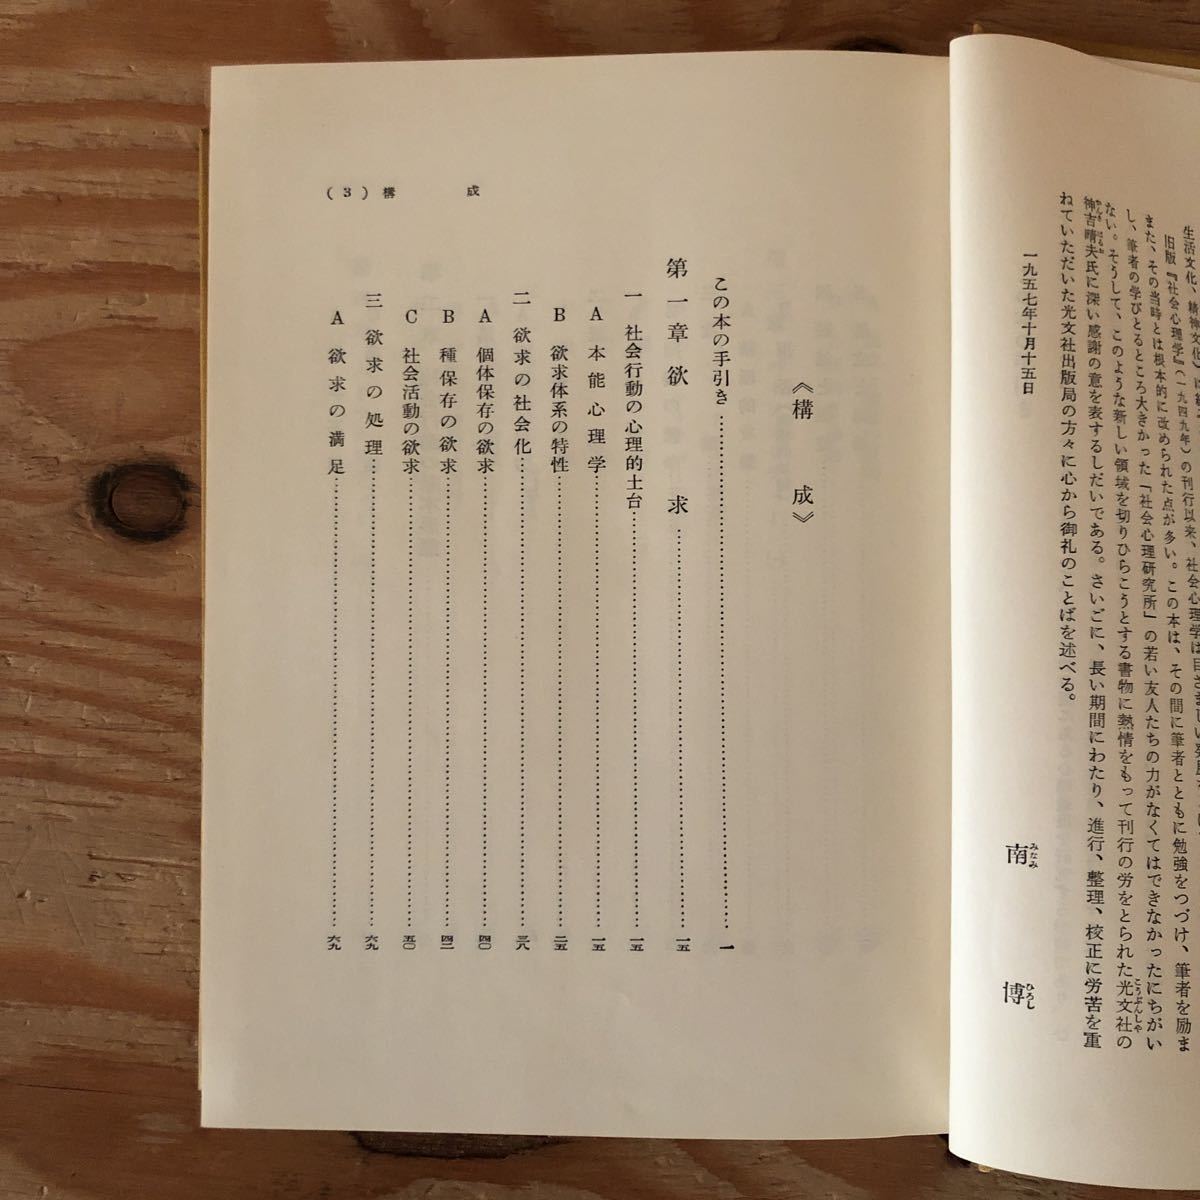 生活文化、精神文化)
旧版『社会心理学』(一九四九年)の刊行以来、社会心理学は目ざましい発展
また、その当時とは根本的に改められた点が多い。この本は、その間に筆者とともに勉強をつづけ、筆者を励ま
し、筆者の学びとるところ大きかった「社会心理研究所」の若い友人たちの力がなくてはできなかったにちがい
ない。そうして、このような新しい領域を切りひらこうとする書物に熱情をもって刊行の労をとられた光文社の
神吉晴夫氏に深い感謝の意を表するしだいである。さいごに、長い期間にわたり、進行、整理、校正に労苦を重
ねていただいた光文社出版局の方々に心から御礼のことばを述べる。
一九五七年十月十五日
南博
みなみ ひろし
《構成》
この本の手引き……一
第一章 欲求……一五
一 社会行動の心理的土台……一五
A 本能心理学……一五
B 欲求体系の特性……二五
二 欲求の社会化……三八
A 個体保存の欲求……四〇
B 種保存の欲求……四二
C 社会活動の欲求……五〇
三 欲求の処理……六九
A 欲求の満足……六九
(3) 構成